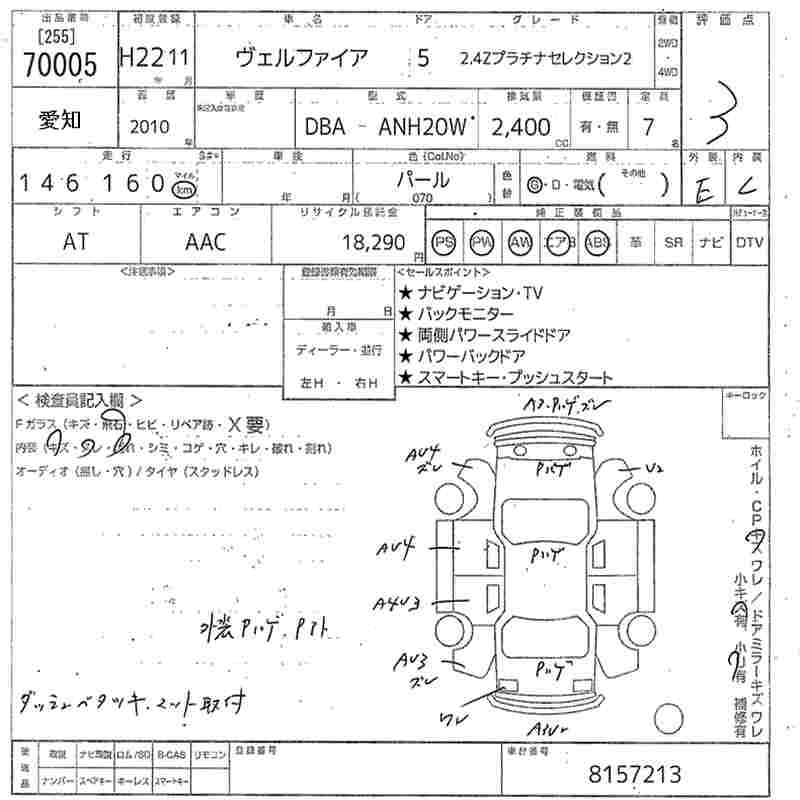 出品番号 初度登録 車名 ドア グレード 駆動 評価点
[255]
70005 H22 11 ヴェルファイア 5 2.4Zプラチナセレクション2 2WD・4WD 3
年 月
愛知 2010 年 車歴 型式 DBA - ANH20W 排気量 2,400 CC 有・無 定員 7 名
走行 車検 色(Col.No) 色替 燃料 外装 内装
146160 マイル km 年 月 パール (070) G・D・電気(その他 ) E C
シフト エアコン リサイクル預託金 純正装備品
AT AAC 18,290 円 PS PW AW エアB ABS 革 SR ナビ DTV
<注意事項> 登録書類有効期限 <セールスポイント>
月 日 ★ナビゲーション・TV
★バックモニター
輸入車 ★両側パワースライドドア
ディーラー・並行 ★パワーバックドア
左H ・ 右H ★スマートキー・プッシュスタート
<検査員記入欄> キーロック
Fガラス(キズ・飛石・ヒビ・リペア跡・X要)
内装(キズ・スレ・汚れ・シミ・コゲ・穴・キレ・破れ・割れ)
オーディオ(無し・穴)/タイヤ(スタッドレス)
A3.Pハゲ.ズレ
AU4 ズレ
Pハゲ
U2
AU4
Pハゲ
A4U3
外装Pハゲ.Pヌケ
AU3 ズレ
Pハゲ
ワレ
ダッシュベタツキ.マット取付
ホイル・CPキズ ワレ/ドアミラーキズ ワレ
小キズ有 小U有 補修有
後送品 取説 ナビ取説 ロム/SD B-CAS リモコン 登録番号 車台番号
ナンバー スペアキー キーレス スマートキー 8157213